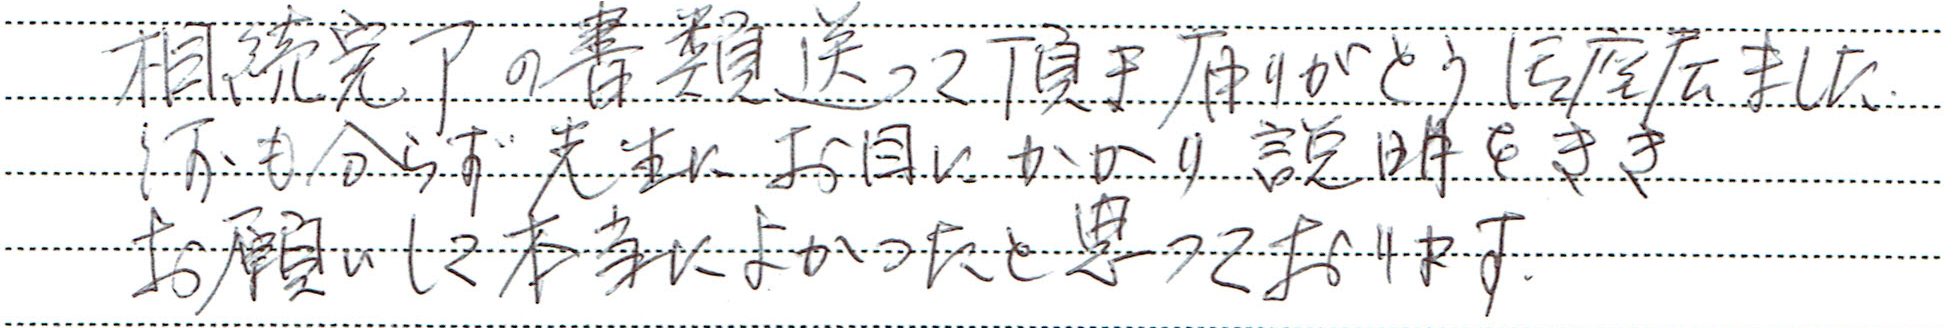 相続完了の書類送って頂き有りがとう御座いました.
何も分らず先生にお目にかかり説明をきき
お願いして本当によかったと思っております.